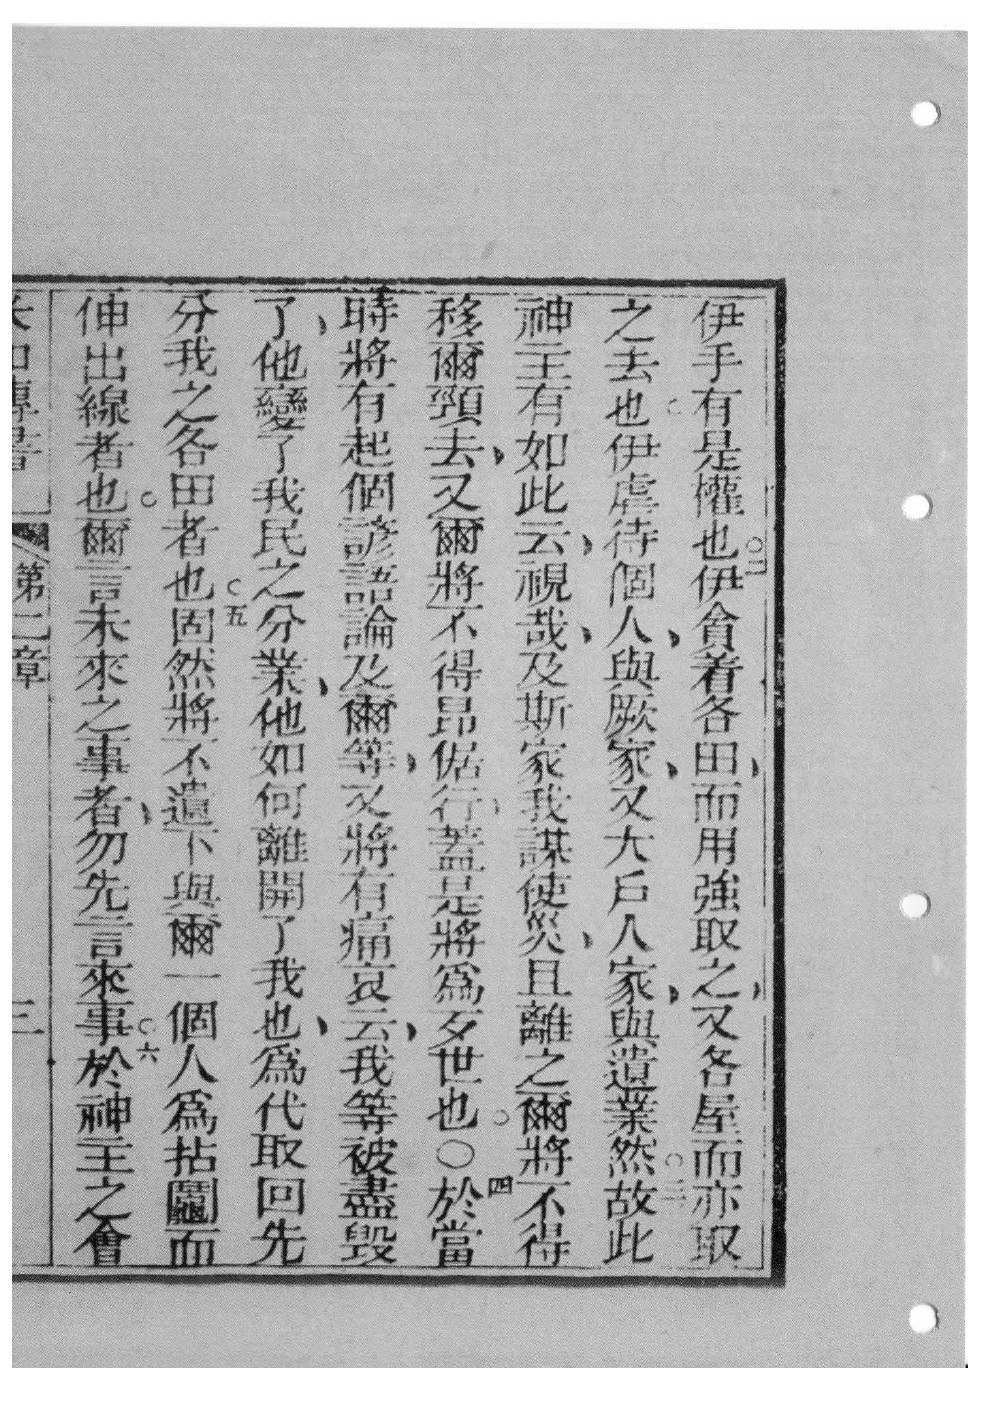 伊手有是權也○二伊貪着各田、而用強取之、又各屋而亦取
之去也○伊虐待個人、與厥家、又大戶人家、與遺業然○三故此
神主有如此云、視哉、及斯家我謀使災、且離之爾將不得
移爾頸去、又爾將不得昂倨行、蓋是將為歹世也○○四於當
時將有起個諺語論及爾等、又將有痛哀云、我等被盡毀
了、他變了我民之分業、他如何離開了我也、為代取回先
分我之各田者也○五固然將不遺下與爾一個人為拈鬮而
伸出線者也○爾言未來之事者、勿先言來事○六於神主之會
米加專書 第二章 三